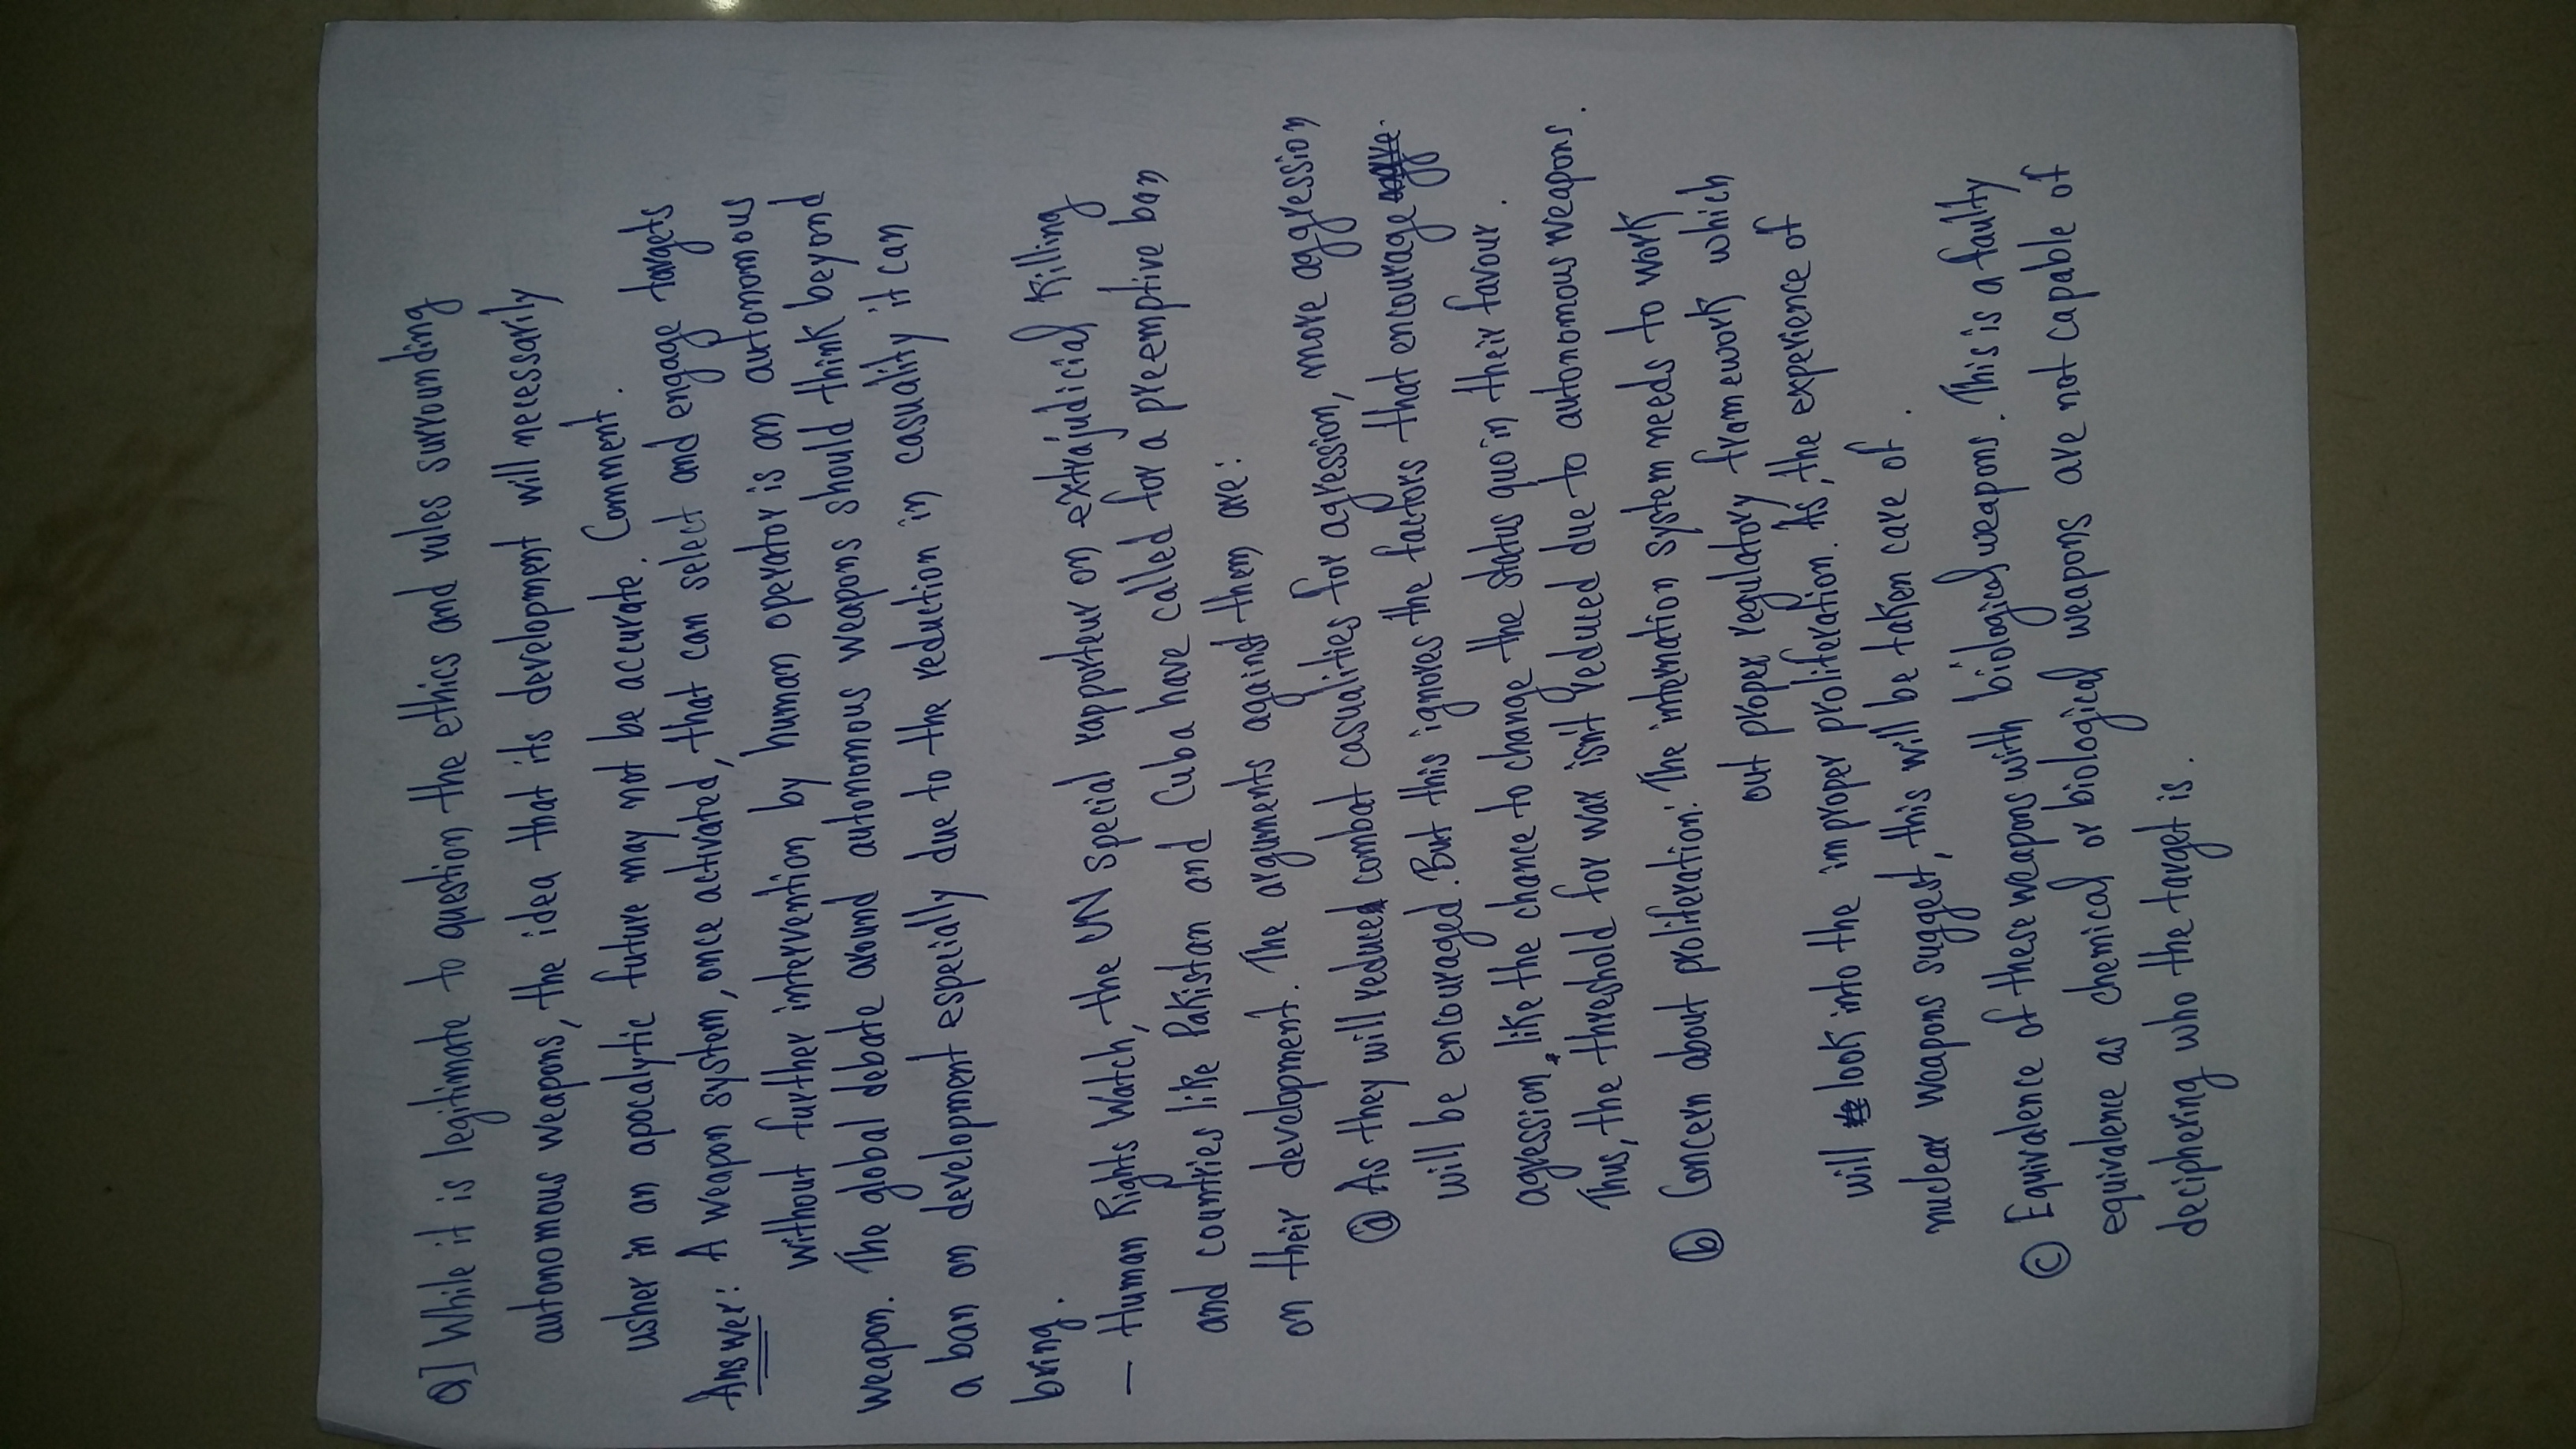 Q] While it is legitimate to question the ethics and rules surrounding
autonomous weapons, the idea that its development will necessarily
usher in an apocalytic future may not be accurate. Comment.
Answer: A weapon system, once activated, that can select and engage targets
without further intervention by human operator is an autonomous
weapon. The global debate around autonomous weapons should think beyond
a ban on development especially due to the reduction in casuality it can
bring.
— Human Rights Watch, the UN Special rapporteur on extrajudicial killing
and countries like Pakistan and Cuba have called for a preemptive ban
on their development. The arguments against them are:
(a) As they will reduce combat casualities for agression, more aggression
will be encouraged. But this ignores the factors that encourage
agression, like the chance to change the status quo in their favour.
Thus, the threshold for war isn't reduced due to autonomous weapons.
(b) Concern about proliferation: The internation system needs to work
out proper regulatory framework which
will look into the improper proliferation. As, the experience of
nuclear weapons suggest, this will be taken care of.
(c) Equivalence of these weapons with biological weapons. This is a faulty
equivalence as chemical or biological weapons are not capable of
deciphering who the target is.